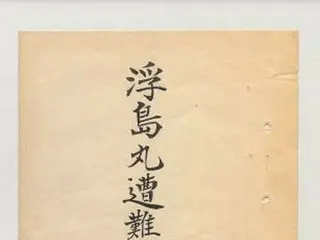 浮島丸遭難